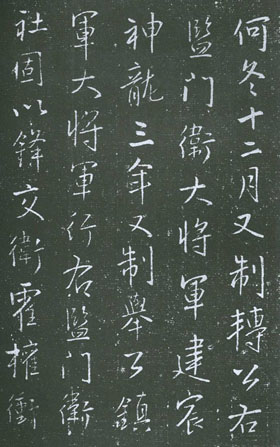 何冬十二月又制轉公右
監門衛大將軍建宸
神龍三年又制舉公鎮
軍大將軍行右監門衛
社固以鋒交衛霍衝